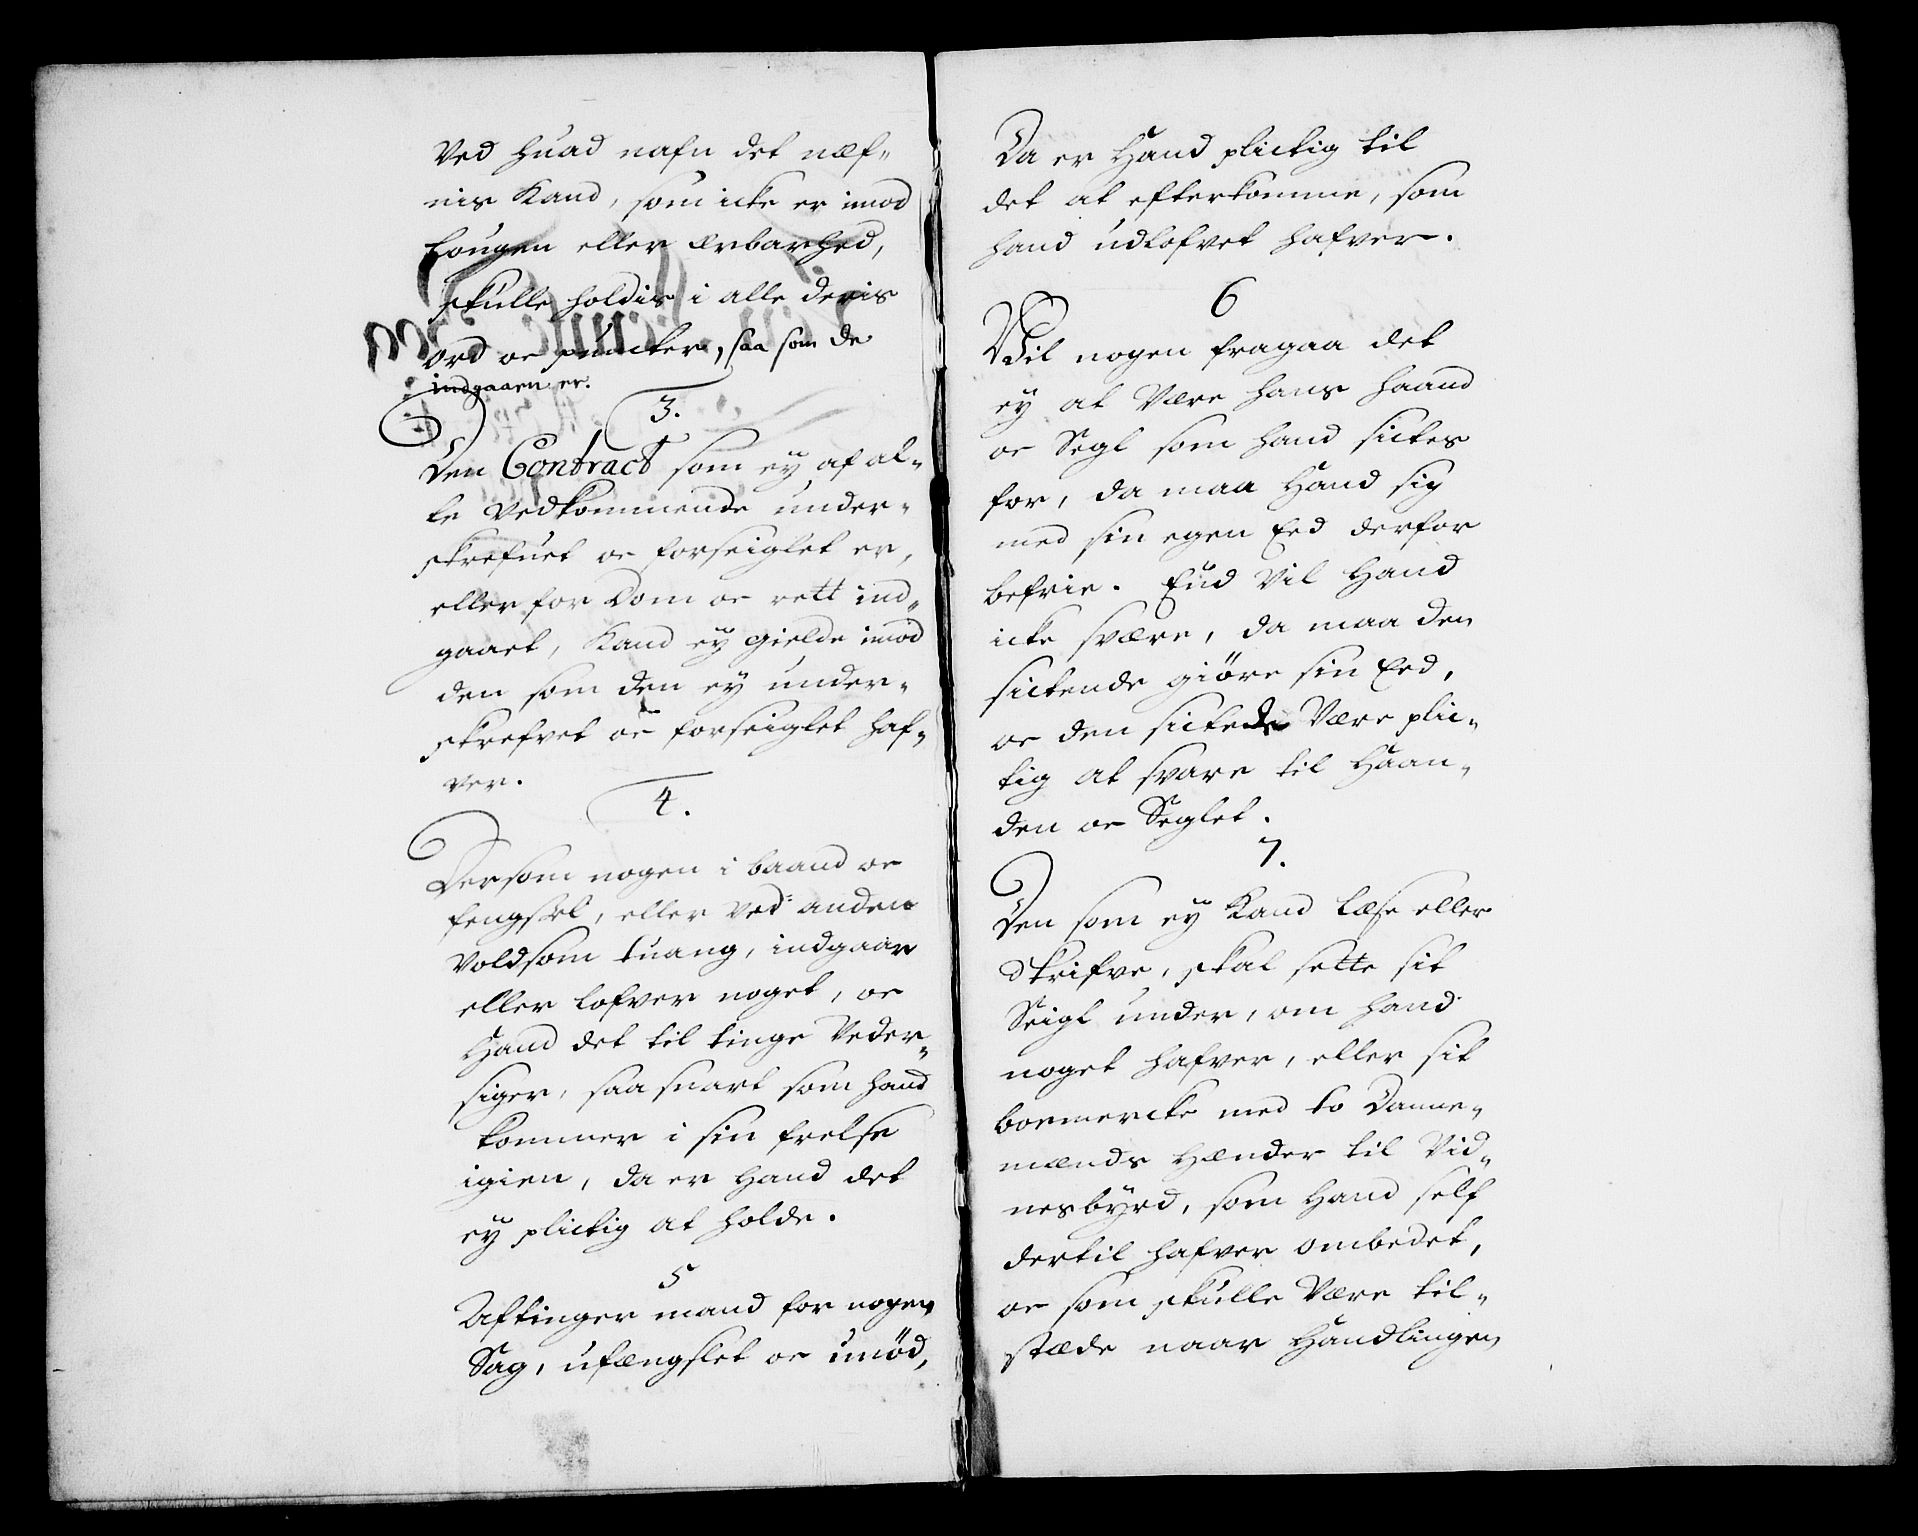 Ved huad nafn det næf-
nis Kand, som icke er imod
Lougen eller ærbarhed,
skulle holdis i alle deris
ord oc puncter, saa som de
indgaaen er.
3.
Den Contract som ey af al-
le Vedkommende under-
skrefuet oc forseiglet er,
eller for Dom oc rett ind-
gaaet, Kand ey gielde imod
den som den ey under-
skrefvet oc forseiglet haf-
ver.
4.
Dersom nogen i baand oc
fengsel, eller ved anden
Voldsom tuang, indgaar
eller lofver noget, oc
Hand det til tinge Veder-
siger, saa snart som hand
kommer i sin frelse
igien, da er Hand det
ey plictig at holde.
5
Aftinger mand for nogen
Sag, ufængslet oc unød,
Da er Hand plictig til
det at efterkomme, som
hand udlofvet hafver.
6
Vil nogen fragaa det
ey at Være hans haand
oc Segl som hand sictes
for, da maa Hand sig
med sin egen Eed derfor
befrie. End Vil Hand
icke svære, da maa den
sictende giöre sin Eed,
oc den sictede Være plic-
tig at svare til Haan-
den oc Seglet.
7.
Den som ey Kand læse eller
skrifve, skal sette sit
Seigl under, om hand
noget hafver, eller sit
boemercke med to Danne-
mænds Hænder til Vid-
nesbyrd, som Hand self
dertil hafver ombedet,
oc som skulle Være til-
stæde naar Handlingen